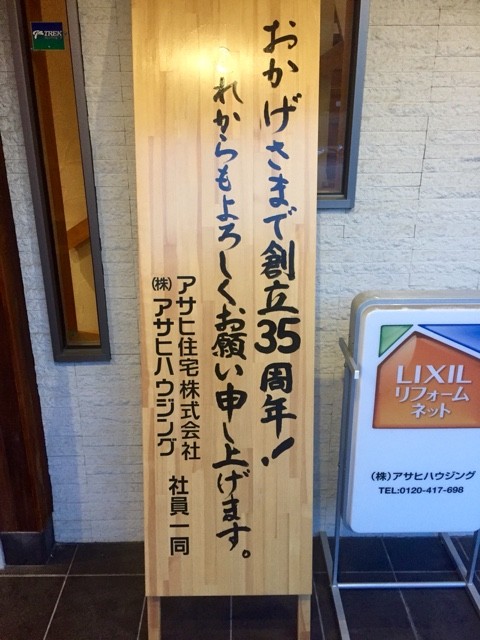 おかげさまで創立35周年!
これからもよろしくお願い申し上げます。
アサヒ住宅株式会社
(株)アサヒハウジング 社員一同
LIXIL
リフォーム
ネット
(株)アサヒハウジング
TEL:0120-417-698
TREK